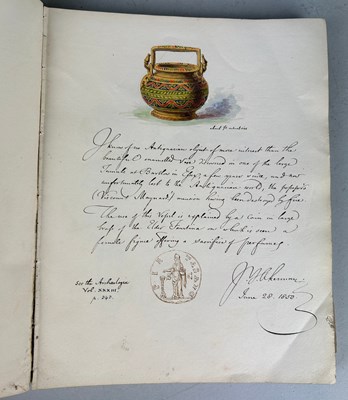 I know of no Antiquarian object of more interest than the
beautiful enamelled Vase found in one of the large
Tumuli at Bartlow in Essex, a few years since, and now
unfortunately lost to the Antiquarian world, the possessor
(Viscount Maynard) mansion having been destroyed by fire
The use of the Vessel is explained by a coin in large
brass of the Elder Faustina on which is seen a
female figure offering a sacrifice of perfumes.
J Y Akerman
June 28. 1850
See the Archæologia
Vol. XXXIII.
p. 345.